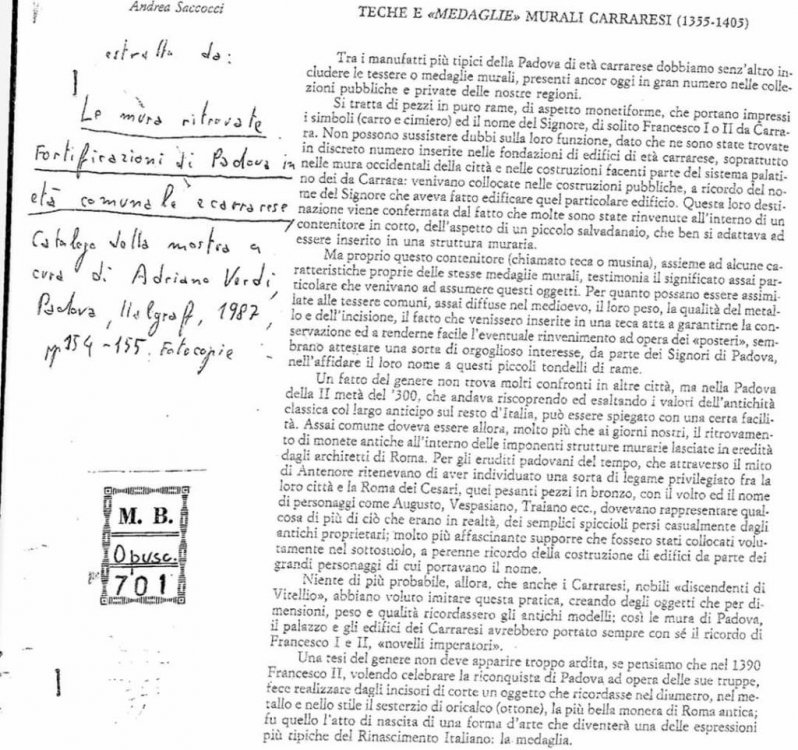 Andrea Saccocci
estratto da:
Le mura ritrovate
Fortificazioni di Padova in
età comunale e carrarese
Catalogo della mostra a
cura di Adriano Verdi,
Padova, Italgraf, 1987,
pp 154-155. Fotocopie
M. B.
Opusc.
701
TECHE E «MEDAGLIE» MURALI CARRARESI (1355-1405)
Tra i manufatti più tipici della Padova di età carrarese dobbiamo senz'altro in-
cludere le tessere o medaglie murali, presenti ancor oggi in gran numero nelle colle-
zioni pubbliche e private delle nostre regioni.
Si tratta di pezzi in puro rame, di aspetto monetiforme, che portano impressi
i simboli (carro e cimiero) ed il nome del Signore, di solito Francesco I o II da Carra-
ra. Non possono sussistere dubbi sulla loro funzione, dato che ne sono state trovate
in discreto numero inserite nelle fondazioni di edifici di età carrarese, soprattutto
nelle mura occidentali della città e nelle costruzioni facenti parte del sistema palati-
no dei da Carrara: venivano collocate nelle costruzioni pubbliche, a ricordo del no-
me del Signore che aveva fatto edificare quel particolare edificio. Questa loro desti-
nazione viene confermata dal fatto che molte sono state rinvenute all'interno di un
contenitore in cotto, dell'aspetto di un piccolo salvadanaio, che ben si adattava ad
essere inserito in una struttura muraria.
Ma proprio questo contenitore (chiamato teca o musina), assieme ad alcune ca-
ratteristiche proprie delle stesse medaglie murali, testimonia il significato assai par-
ticolare che venivano ad assumere questi oggetti. Per quanto possano essere assimi-
late alle tessere comuni, assai diffuse nel medioevo, il loro peso, la qualità del metal-
lo e dell'incisione, il fatto che venissero inserite in una teca atta a garantirne la con-
servazione ed a renderne facile l'eventuale rinvenimento ad opera dei «posteri», sem-
brano attestare una sorta di orgoglioso interesse, da parte dei Signori di Padova,
nell'affidare il loro nome a questi piccoli tondelli di rame.
Un fatto del genere non trova molti confronti in altre città, ma nella Padova
della II metà del '300, che andava riscoprendo ed esaltando i valori dell'antichità
classica col largo anticipo sul resto d'Italia, può essere spiegato con una certa facili-
tà. Assai comune doveva essere allora, molto più che ai giorni nostri, il ritrovamen-
to di monete antiche all'interno delle imponenti strutture murarie lasciate in eredità
dagli architetti di Roma. Per gli eruditi padovani del tempo, che attraverso il mito
di Antenore ritenevano di aver individuato una sorta di legame privilegiato fra la
loro città e la Roma dei Cesari, quei pesanti pezzi in bronzo, con il volto ed il nome
di personaggi come Augusto, Vespasiano, Traiano ecc., dovevano rappresentare qual-
cosa di più di ciò che erano in realtà, dei semplici spiccioli persi casualmente dagli
antichi proprietari; molto più affascinante supporre che fossero stati collocati volu-
tamente nel sottosuolo, a perenne ricordo della costruzione di edifici da parte dei
grandi personaggi di cui portavano il nome.
Niente di più probabile, allora, che anche i Carraresi, nobili «discendenti di
Vitellio», abbiano voluto imitare questa pratica, creando degli oggetti che per di-
mensioni, peso e qualità ricordassero gli antichi modelli; così le mura di Padova,
il palazzo e gli edifici dei Carraresi avrebbero portato sempre con sé il ricordo di
Francesco I e II, «novelli imperatori».
Una tesi del genere non deve apparire troppo ardita, se pensiamo che nel 1390
Francesco II, volendo celebrare la riconquista di Padova ad opera delle sue truppe,
fece realizzare dagli incisori di corte un oggetto che ricordasse nel diametro, nel me-
tallo e nello stile il sesterzio di oricalco (ottone), la più bella moneta di Roma antica;
fu quello l'atto di nascita di una forma d'arte che diventerà una delle espressioni
più tipiche del Rinascimento Italiano: la medaglia.